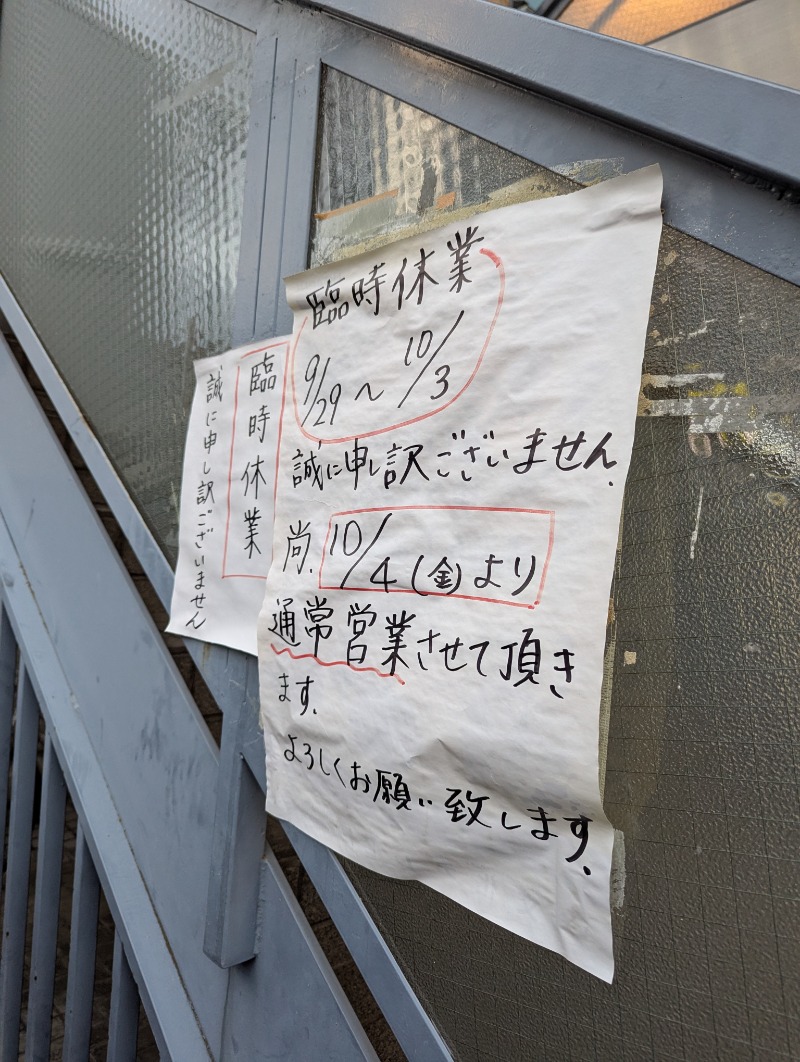 臨時休業
9/29～10/3
誠に申し訳ございません.
尚.10/4(金)より
通常営業させて頂き
ます.
よろしくお願い致します.
臨時休業
誠に申し訳ございません